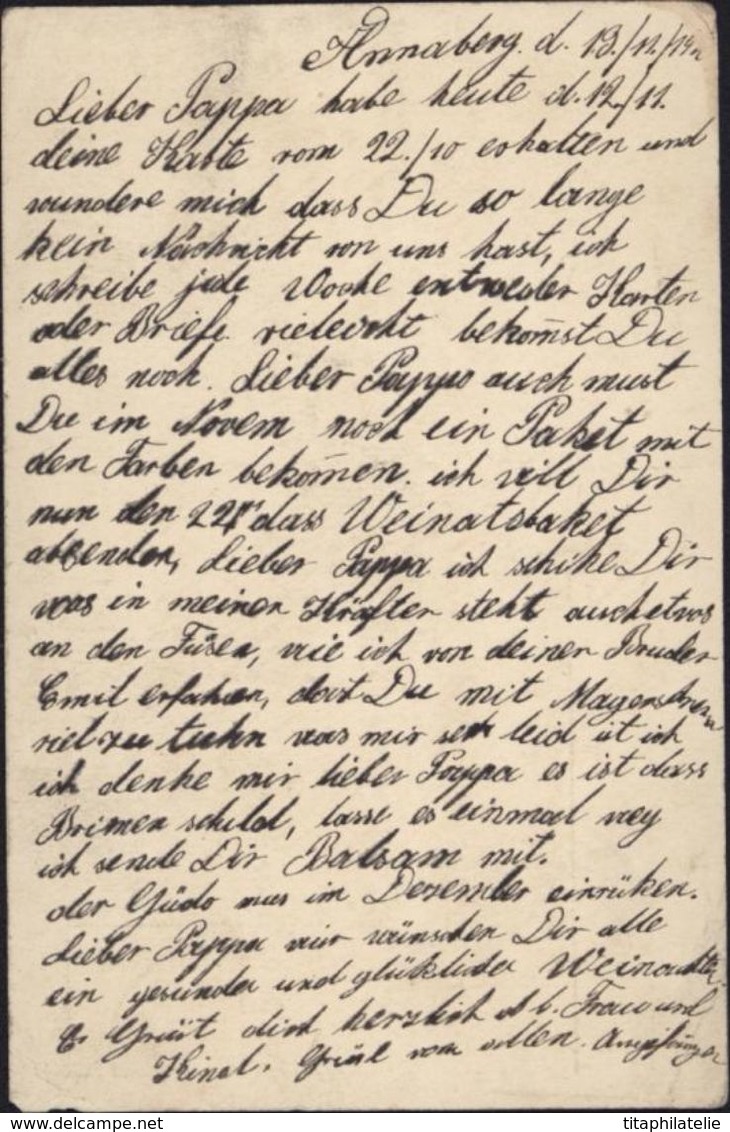 Annaberg. d. 13./11./19
Lieber Pappa habe heute d. 12./11.
deine Karte vom 22./10 erhalten und
wundere mich dass Du so lange
kein Nachricht von uns hast, ich
schreibe jede Woche entweder Karten
oder Briefe vieleicht bekom̄st Du
alles noch. Lieber Pappa auch must
Du im Novem noch ein Paket mit
den Farben bekom̄en. ich will Dir
nun den dass Weinatsbaket
absenden, Lieber Pappa ich schike Dir
was in meinen Kräften steht auch etwas
an den Füsen, wie ich von deinen Bruder
Emil erfahren, dast Du mit
viel zu tuhn was mir sehr leid ist ich
ich denke mir lieber Pappa es ist dass
Brimen schuld, lasse es einmal weg
ich sende Dir Balsam mit.
der Güdo mus im Dezember einrüken.
Lieber Pappa wir wünschen Dir alle
ein gesunde und glükliche
Es Grüst dich herzlich d. l. Frau und
Kind. Grüse von allen.
titaphilatelie